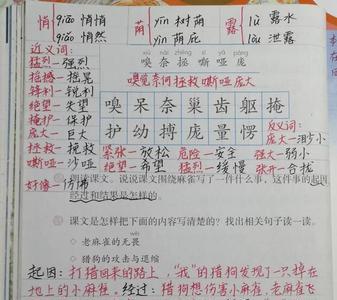 悄 qiāo 悄悄 荫 yīn 树荫 露 lù 露水
qiǎo 悄然 yìn 荫庇 lòu 泄露
近义词:
xiù nài zhěng sī yǎ páng
猛烈-强烈 嗅奈拯嘶哑庞
摇撼-摇晃 嗅觉奈何拯救嘶哑庞大
锋利-锐利
绝望-失望 嗅呆奈巢齿躯掩
掩护-保护
庞大-巨大 护幼搏庞量愣 反义词:
庞大-渺小
拯救-挽救 紧张-放松 危险-安全 强大-弱小
嘶哑-沙哑 绝望-希望 猛烈-缓慢 张开-合拢
好像-仿佛
朗读课文,说说课文围绕麻雀写了一件什么事,这件事的起因、
经过和结果是怎样的。
课文是怎样把下面的内容写清楚的?找出相关句子读一读。
◇ 老麻雀的无畏
◇ 猎狗的攻击与退缩
起因:打猎回来的路上,“我”的猎狗发现了一只掉在
地上的小麻雀,经过:猎狗想伤害小麻雀,老麻雀飞